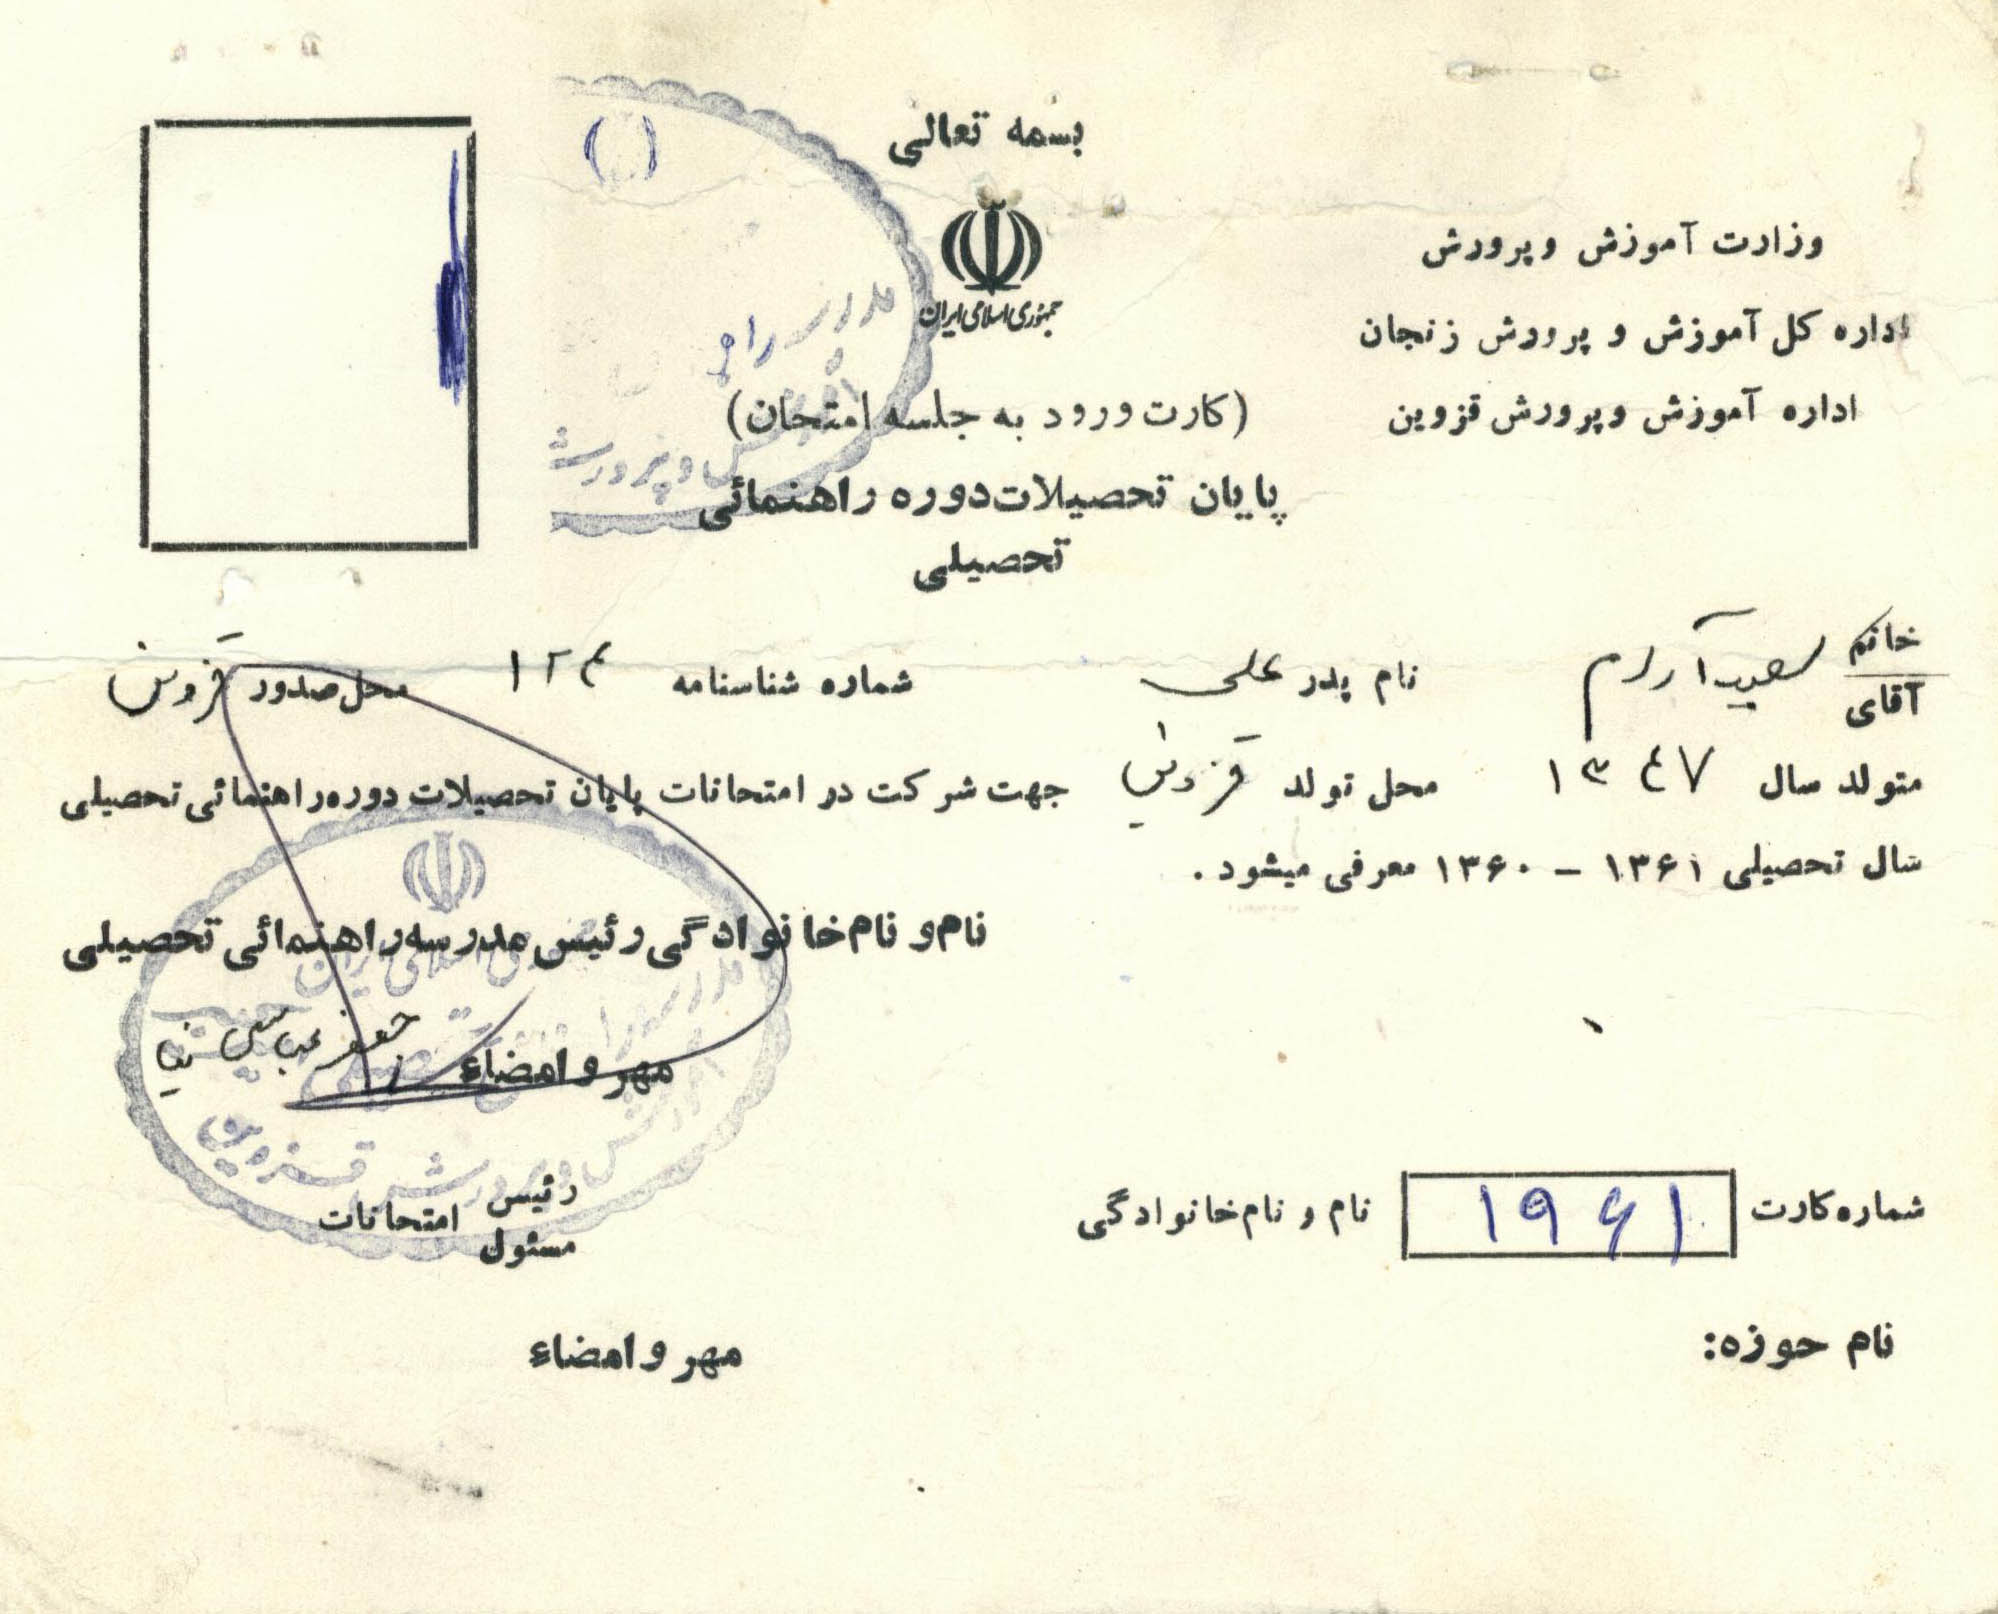 بسمه تعالی
جمهوری اسلامی ایران
وزارت آموزش و پرورش
اداره کل آموزش و پرورش زنجان
اداره آموزش و پرورش قزوین
(کارت ورود به جلسه امتحان)
پایان تحصیلات دوره راهنمائی
تحصیلی
خانم
آقای سعید آرام نام پدر علی شماره شناسنامه ۱۲۴ محل صدور قزوین
متولد سال ۱۳۴۷ محل تولد قزوین جهت شرکت در امتحانات پایان تحصیلات دوره راهنمائی تحصیلی
سال تحصیلی ۱۳۶۱ - ۱۳۶۰ معرفی میشود .
نام و نام خانوادگی رئیس مدرسه راهنمائی تحصیلی
جعفر عباسی نیا
مهر و امضاء
آموزش و پرورش قزوین
شماره کارت ۱۹۶۱ نام و نام خانوادگی
رئیس
مسئول امتحانات
نام حوزه:
مهر و امضاء